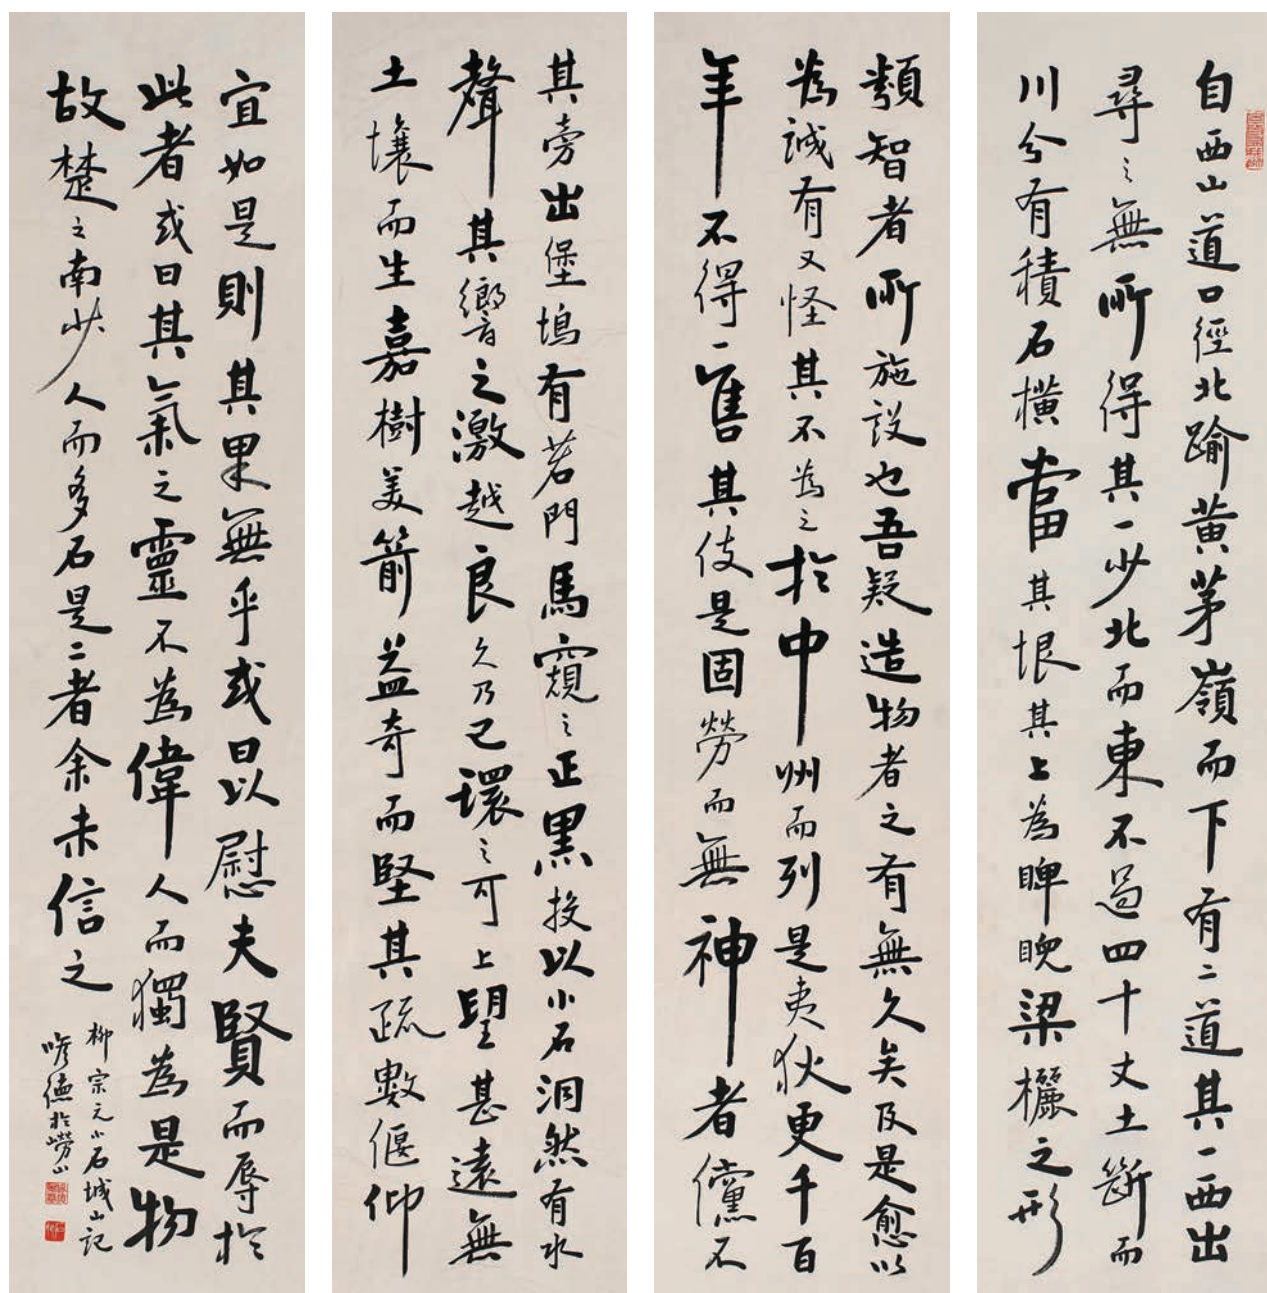 自西山道口徑北踰黄茅嶺而下有二道其一西出
尋之無所得其一少北而東不過四十丈土斷而
川分有積石橫當其垠其上為睥睨梁欐之形
類智者所施設也吾疑造物者之有無久矣及是愈以
為誠有又怪其不為之於中州而列是夷狄更千百
年不得一售其伎是固勞而無神者儻不
其旁出堡塢有若門焉窺之正黑投以小石洞然有水
聲其響之激越良久乃已環之可上望甚遠無
土壤而生嘉樹美箭益奇而堅其疏數偃仰
宜如是則其果無乎或曰以慰夫賢而辱於
此者或曰其氣之靈不為偉人而獨為是物
故楚之南少人而多石是二者余未信之
柳宗元小石城山記
德於嶗山